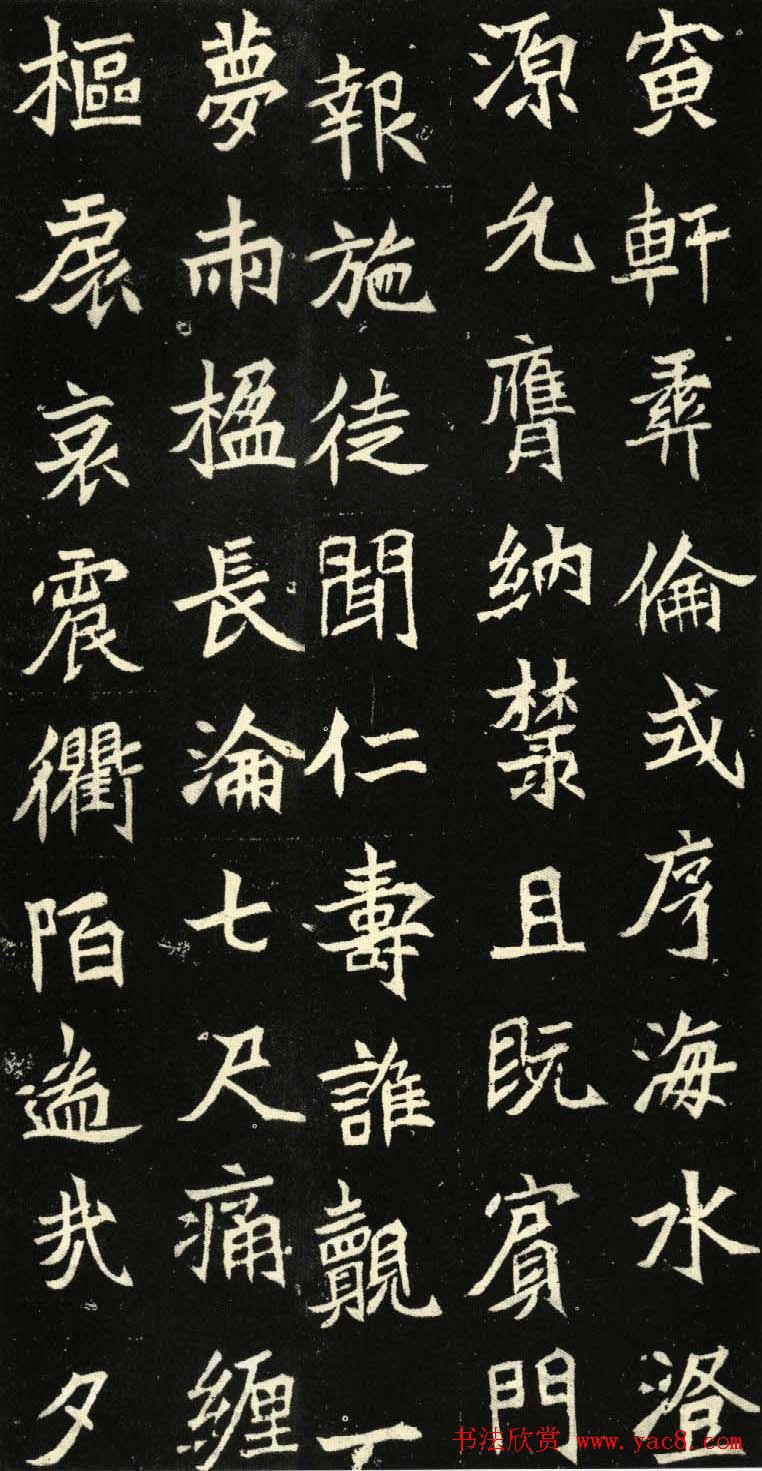 寅軒彝倫式序海水澄
源允膺納麓且既賓門
報施徒聞仁壽誰覿一
夢兩楹長淪七尺痛纏
樞扆哀震衢陌夕
书法欣赏 www.yac8.com